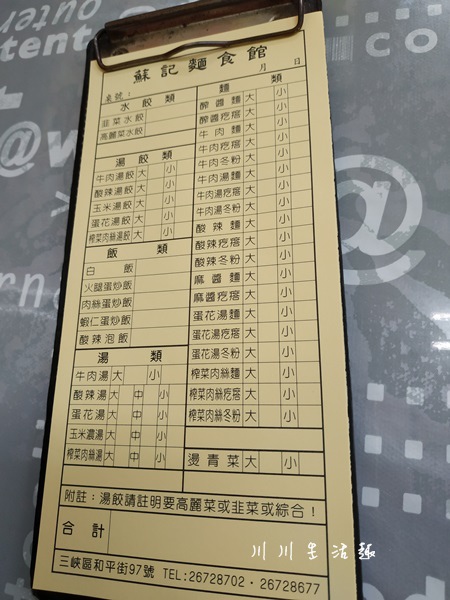 蘇記麵食館
月 日
桌號：
水餃類
韭菜水餃
高麗菜水餃
湯餃類
牛肉湯餃 大 小
酸辣湯餃 大 小
玉米湯餃 大 小
蛋花湯餃 大 小
榨菜肉絲湯餃 大 小
飯類
白飯
火腿蛋炒飯
肉絲蛋炒飯
蝦仁蛋炒飯
酸辣泡飯
湯類
牛肉湯 大 小
酸辣湯 大 中 小
蛋花湯 大 中 小
玉米濃湯 大 中 小
榨菜肉絲湯 大 中 小
麵類
酢醬麵 大 小
酢醬疙瘩 大 小
牛肉麵 大 小
牛肉疙瘩 大 小
牛肉冬粉 大 小
牛肉湯麵 大 小
牛肉湯疙瘩 大 小
牛肉湯冬粉 大 小
酸辣麵 大 小
酸辣疙瘩 大 小
酸辣冬粉 大 小
麻醬麵 大 小
麻醬疙瘩 大 小
蛋花湯麵 大 小
蛋花湯疙瘩 大 小
蛋花湯冬粉 大 小
榨菜肉絲麵 大 小
榨菜肉絲疙瘩 大 小
榨菜肉絲冬粉 大 小
燙青菜 大 小
附註：湯餃請註明要高麗菜或韭菜或綜合！
合計
三峽區和平街97號 TEL:26728702・26728677
川川生活趣